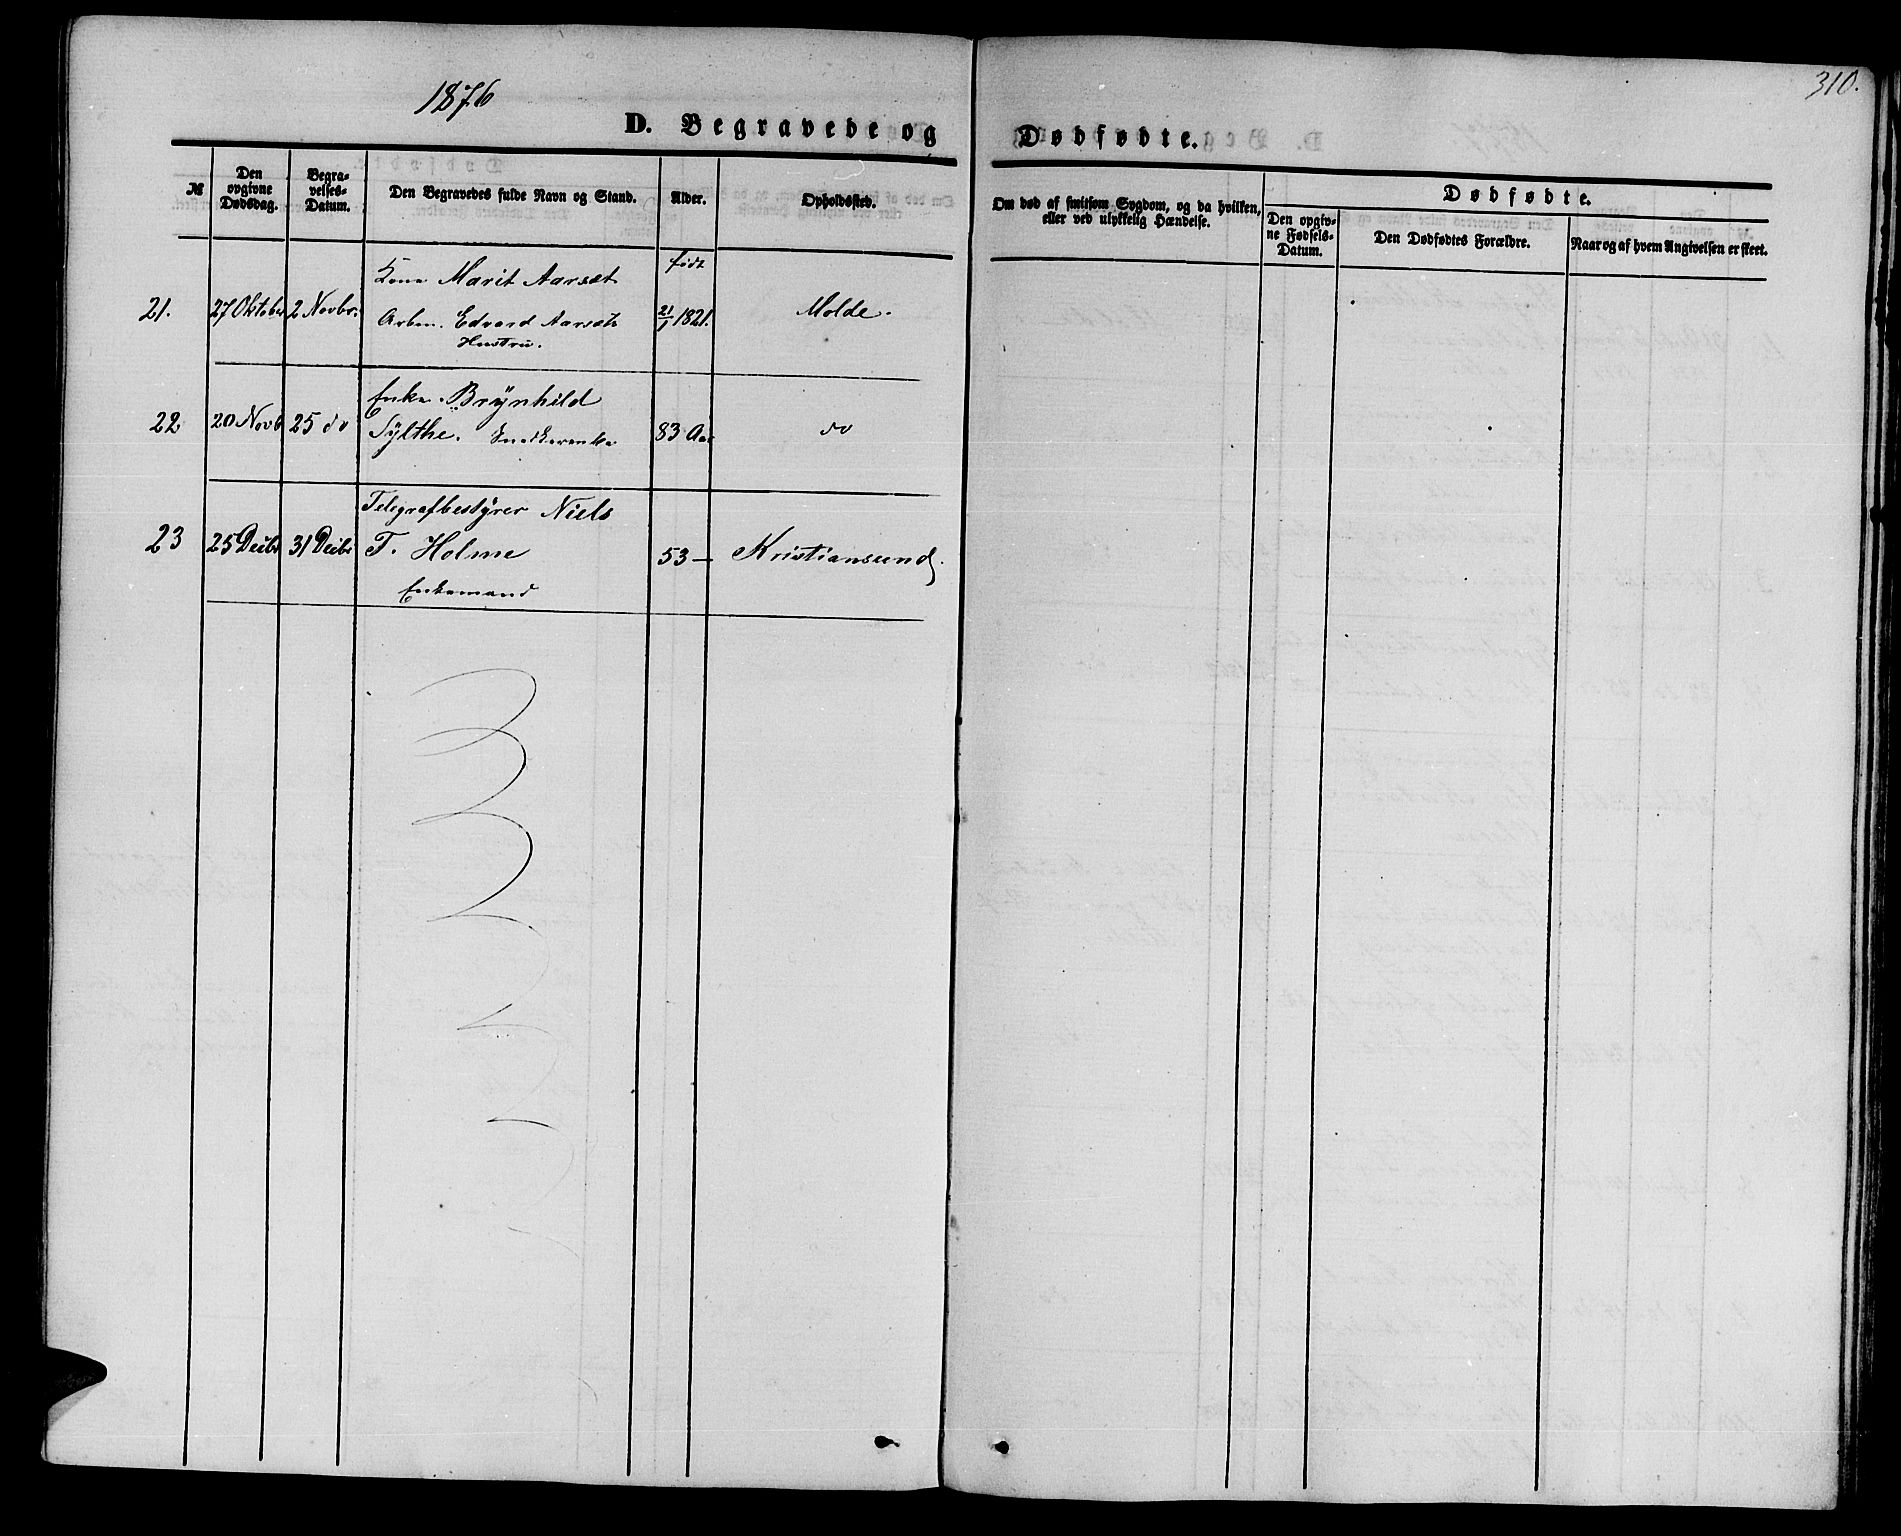 1876
310.
D. Begravede og Dødfødte.
№
Den opgivne Dødsdag.
Begravelses-Datum.
Den Begravedes fulde Navn og Stand.
Alder.
Opholdssted.
Om død af smitsom Sygdom, og da hvilken, eller ved ulykkelig Hændelse.
Dødfødte.
Den opgivne Fødsels-Datum.
Den Dødfødtes Forældre.
Naar og af hvem Angivelsen er skeet.
21. 27 Oktober 2 Novbr. Kone Marit Aarsæt født
Arben. Edvard Aarsæts 21/1 1821. Molde.
Hustru.
22 20 Novb 25 do Enke Brÿnhild
Sÿlthe. Snedkerenke 83 Aar do
Telegrafbestÿrer Niels
23 25 Decbr 31 Decbr T. Holme 53 — Kristiansund.
Enkemand